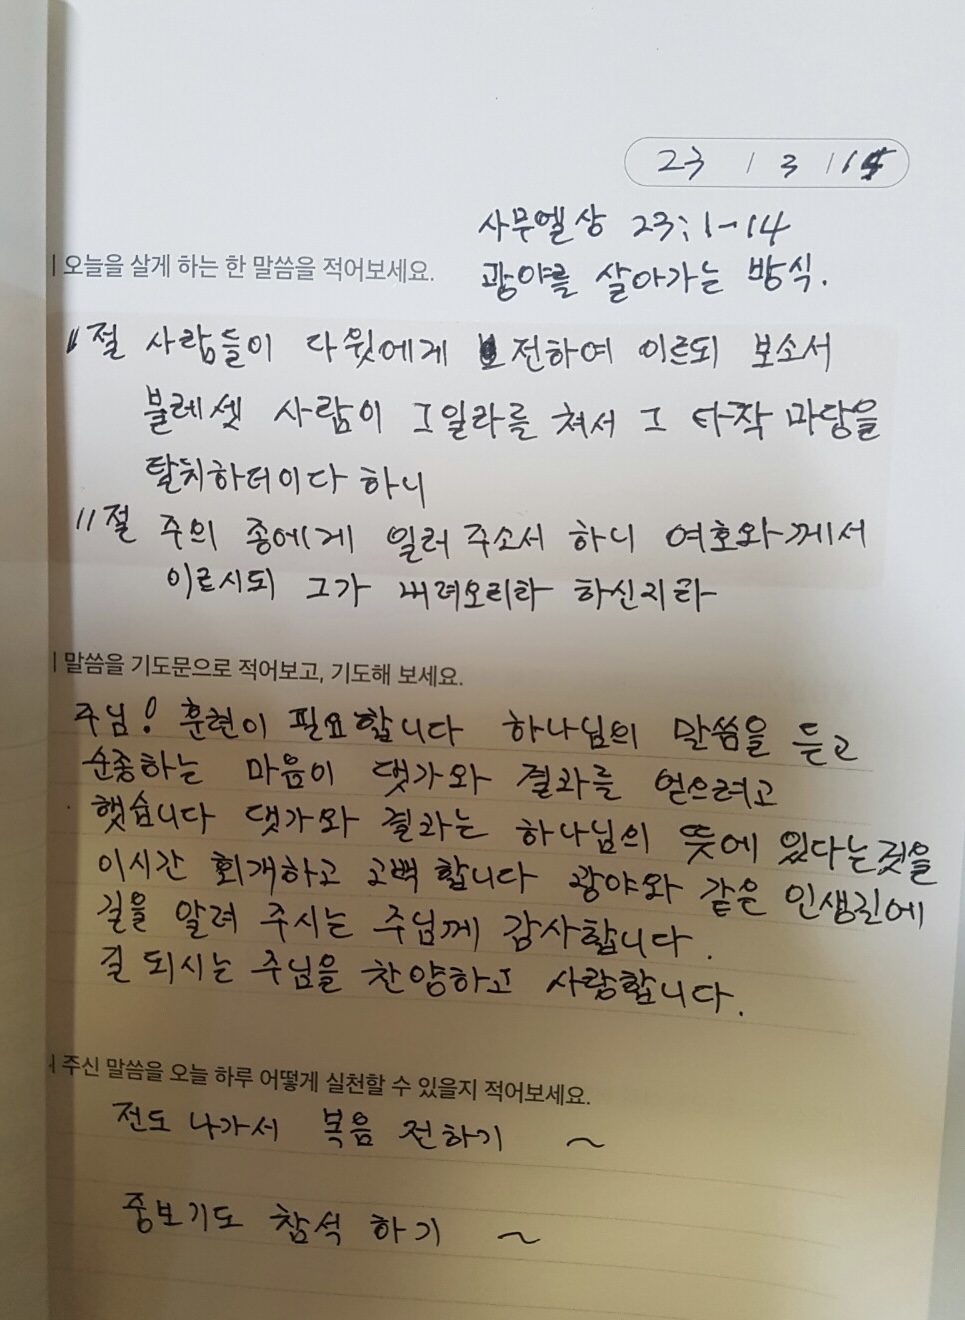 23 / 3 /15
사무엘상 23:1-14
| 오늘을 살게 하는 한 말씀을 적어보세요.
광야를 살아가는 방식.
1절 사람들이 다윗에게 전하여 이르되 보소서
블레셋 사람이 그일라를 쳐서 그 타작 마당을
탈취하더이다 하니
11절 주의 종에게 일러 주소서 하니 여호와께서
이르시되 그가 내려오리라 하신지라
| 말씀을 기도문으로 적어보고, 기도해 보세요.
주님! 훈련이 필요합니다 하나님의 말씀을 듣고
순종하는 마음이 댓가와 결과를 얻으려고
했습니다 댓가와 결과는 하나님의 뜻에 있다는것을
이시간 회개하고 고백합니다 광야와 같은 인생길에
길을 알려 주시는 주님께 감사합니다.
길 되시는 주님을 찬양하고 사랑합니다.
| 주신 말씀을 오늘 하루 어떻게 실천할 수 있을지 적어보세요.
전도 나가서 복음 전하기 ~
중보기도 참석 하기 ~